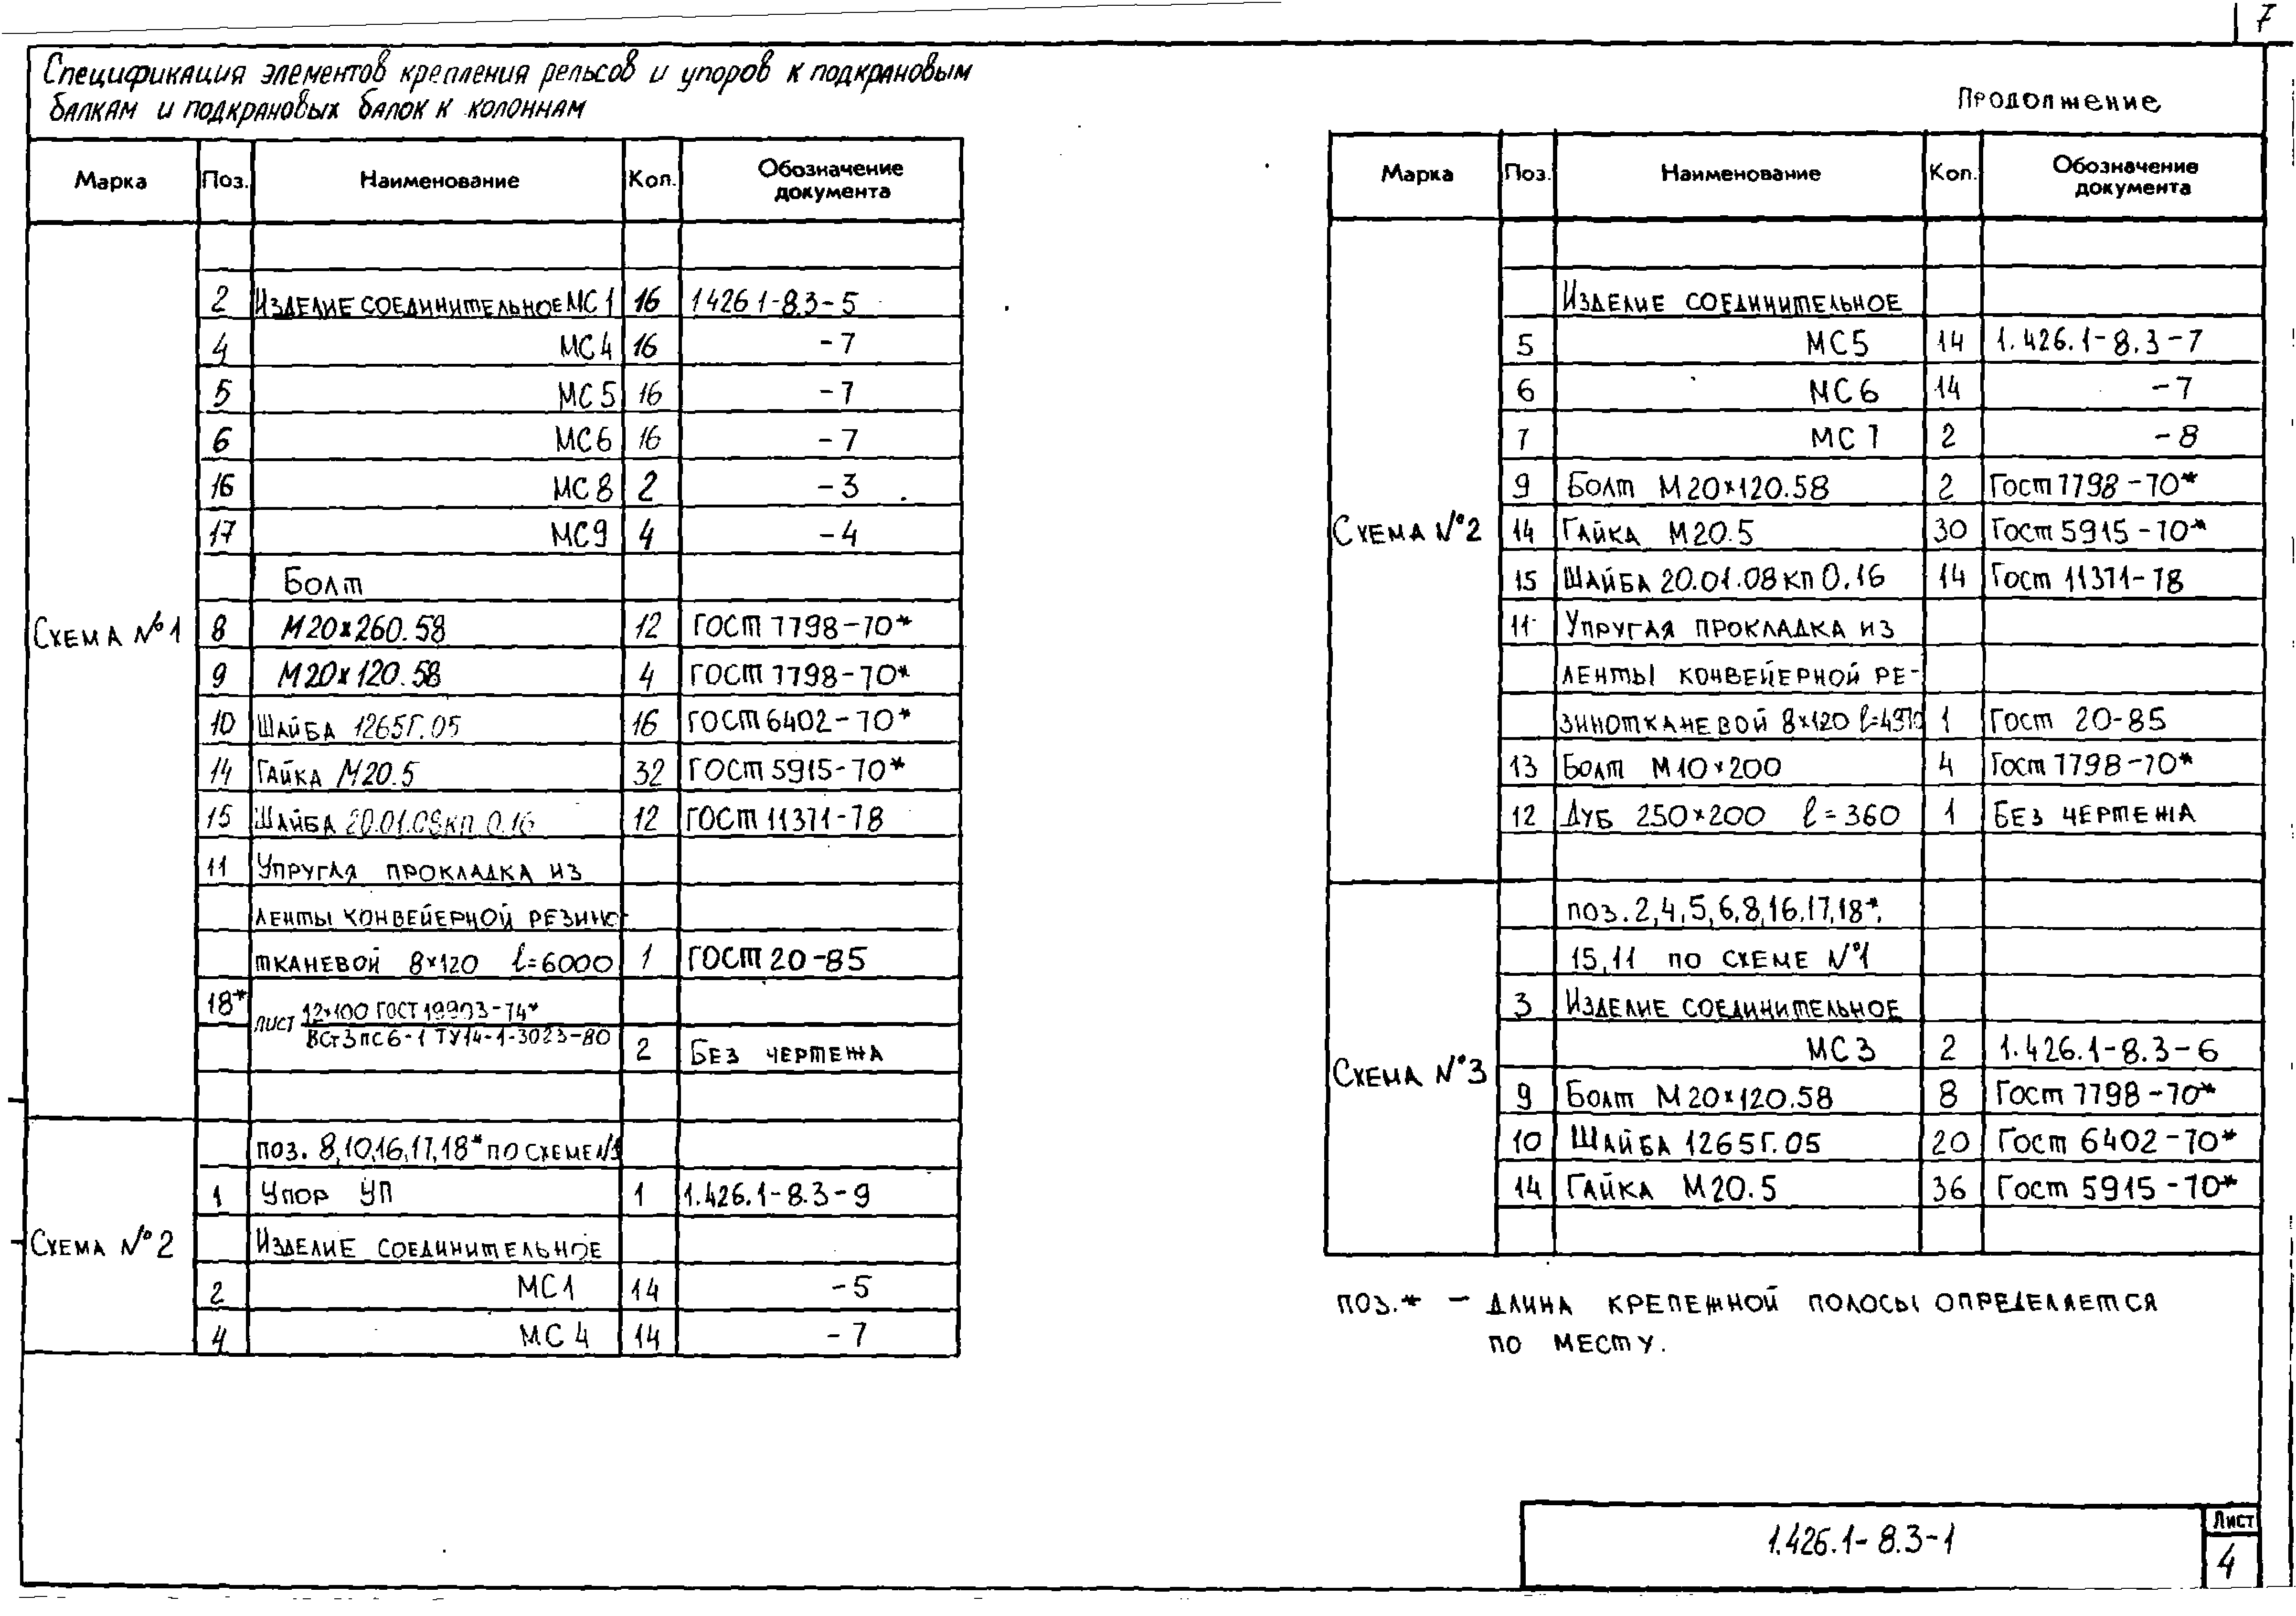 7
Спецификация элементов крепления рельсов и упоров к подкрановым
балкам и подкрановых балок к колоннам
Марка Поз. Наименование Кол. Обозначение документа
Схема №1
2 Изделие соединительное МС1 16 1.426.1-8.3-5
4 МС4 16 -7
5 МС5 16 -7
6 МС6 16 -7
16 МС8 2 -3
17 МС9 4 -4
Болт
8 М20×260.58 12 ГОСТ 7798-70*
9 М20×120.58 4 ГОСТ 7798-70*
10 Шайба 1265Г.05 16 ГОСТ 6402-70*
14 Гайка М20.5 32 ГОСТ 5915-70*
15 Шайба 20.01.08кп 0.16 12 ГОСТ 11371-78
11 Упругая прокладка из
ленты конвейерной резино-
тканевой 8×120 l=6000 1 ГОСТ 20-85
18* лист 12×100 ГОСТ 19903-74*
ВСт3пс6-1 ТУ14-1-3023-80 2 Без чертежа
Схема №2
поз. 8,10,16,17,18* по схеме №1
1 Упор УП 1 1.426.1-8.3-9
Изделие соединительное
2 МС1 14 -5
4 МС4 14 -7
Продолжение
Марка Поз. Наименование Кол. Обозначение документа
Схема №2
Изделие соединительное
5 МС5 14 1.426.1-8.3-7
6 МС6 14 -7
7 МС7 2 -8
9 Болт М20×120.58 2 Гост 7798-70*
14 Гайка М20.5 30 Гост 5915-70*
15 Шайба 20.01.08кп 0.16 14 Гост 11371-78
11 Упругая прокладка из
ленты конвейерной ре-
зинотканевой 8×120 l=4970 1 Гост 20-85
13 Болт М10×200 4 Гост 7798-70*
12 Дуб 250×200 l=360 1 Без чертежа
Схема №3
поз. 2,4,5,6,8,16,17,18*,
15,11 по схеме №1
3 Изделие соединительное
МС3 2 1.426.1-8.3-6
9 Болт М20×120.58 8 Гост 7798-70*
10 Шайба 1265Г.05 20 Гост 6402-70*
14 Гайка М20.5 36 Гост 5915-70*
поз.* – длина крепежной полосы определяется
по месту.
1.426.1-8.3-1
Лист
4